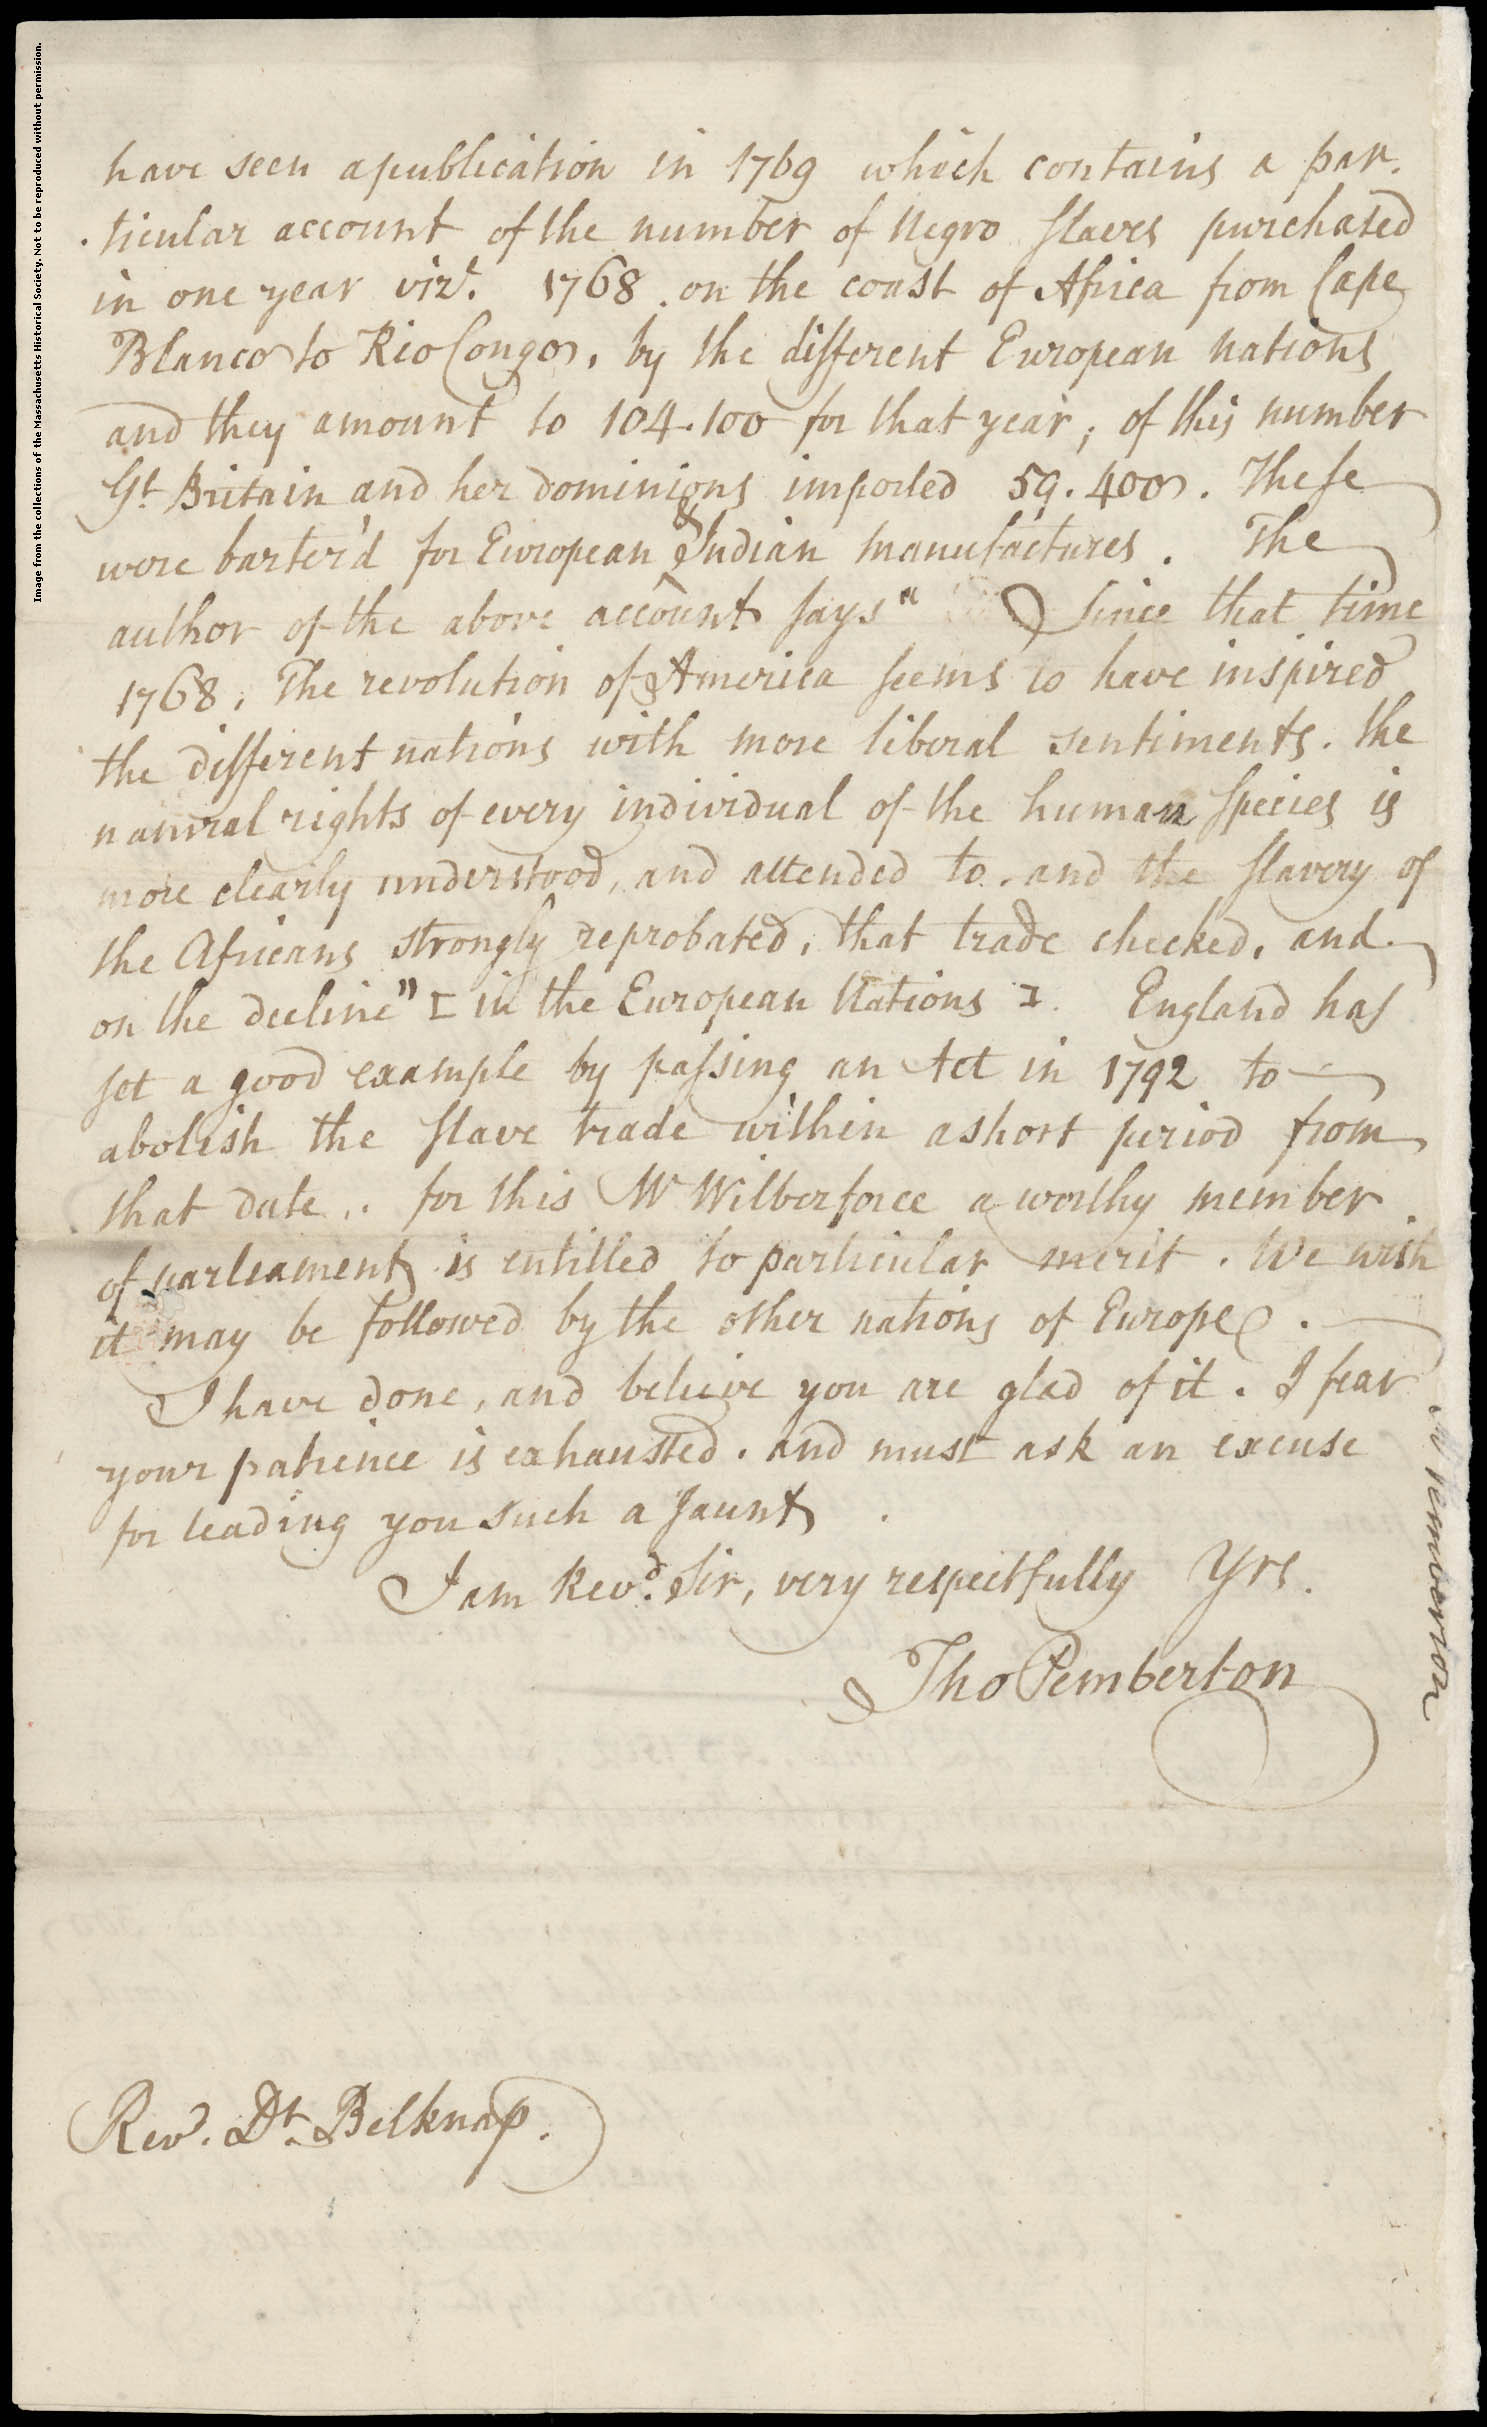 Image from the collections of the Massachusetts Historical Society. Not to be reproduced without permission.
have seen a publication in 1769 which contains a par.
. ticular account of the number of Negro slaves purchased
in one year vizt. 1768. on the coast of Africa from Cape
Blanco to Rio Congo, by the different European nations
and they amount to 104.100 for that year; of this number
Gt. Britain and her dominions imported 59.400. These
were barter'd for European & Indian manufactures. The
author of the above account says " Since that time
1768, The revolution of America seems to have inspired
the different nations with more liberal sentiments. the
natural rights of every individual of the human species is
more clearly understood, and attended to. and the slavery of
the Africans strongly reprobated, that trade checked, and
on the decline" [in the European Nations]. England has
set a good example by passing an Act in 1792 to
abolish the slave trade within a short period from
that date.. for this Mr Wilberforce a worthy member
of parliament is entitled to particular merit. We wish
it may be followed by the other nations of Europe.
I have done, and believe you are glad of it. I fear
your patience is exhausted. and must ask an excuse
for leading you such a jaunt.
I am Revd. Sir, very respectfully Yrs.
Tho Pemberton
Mr Pemberton
Rev. Dr. Belknap.